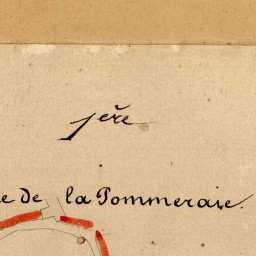 1ère
e de la Pommeraie.